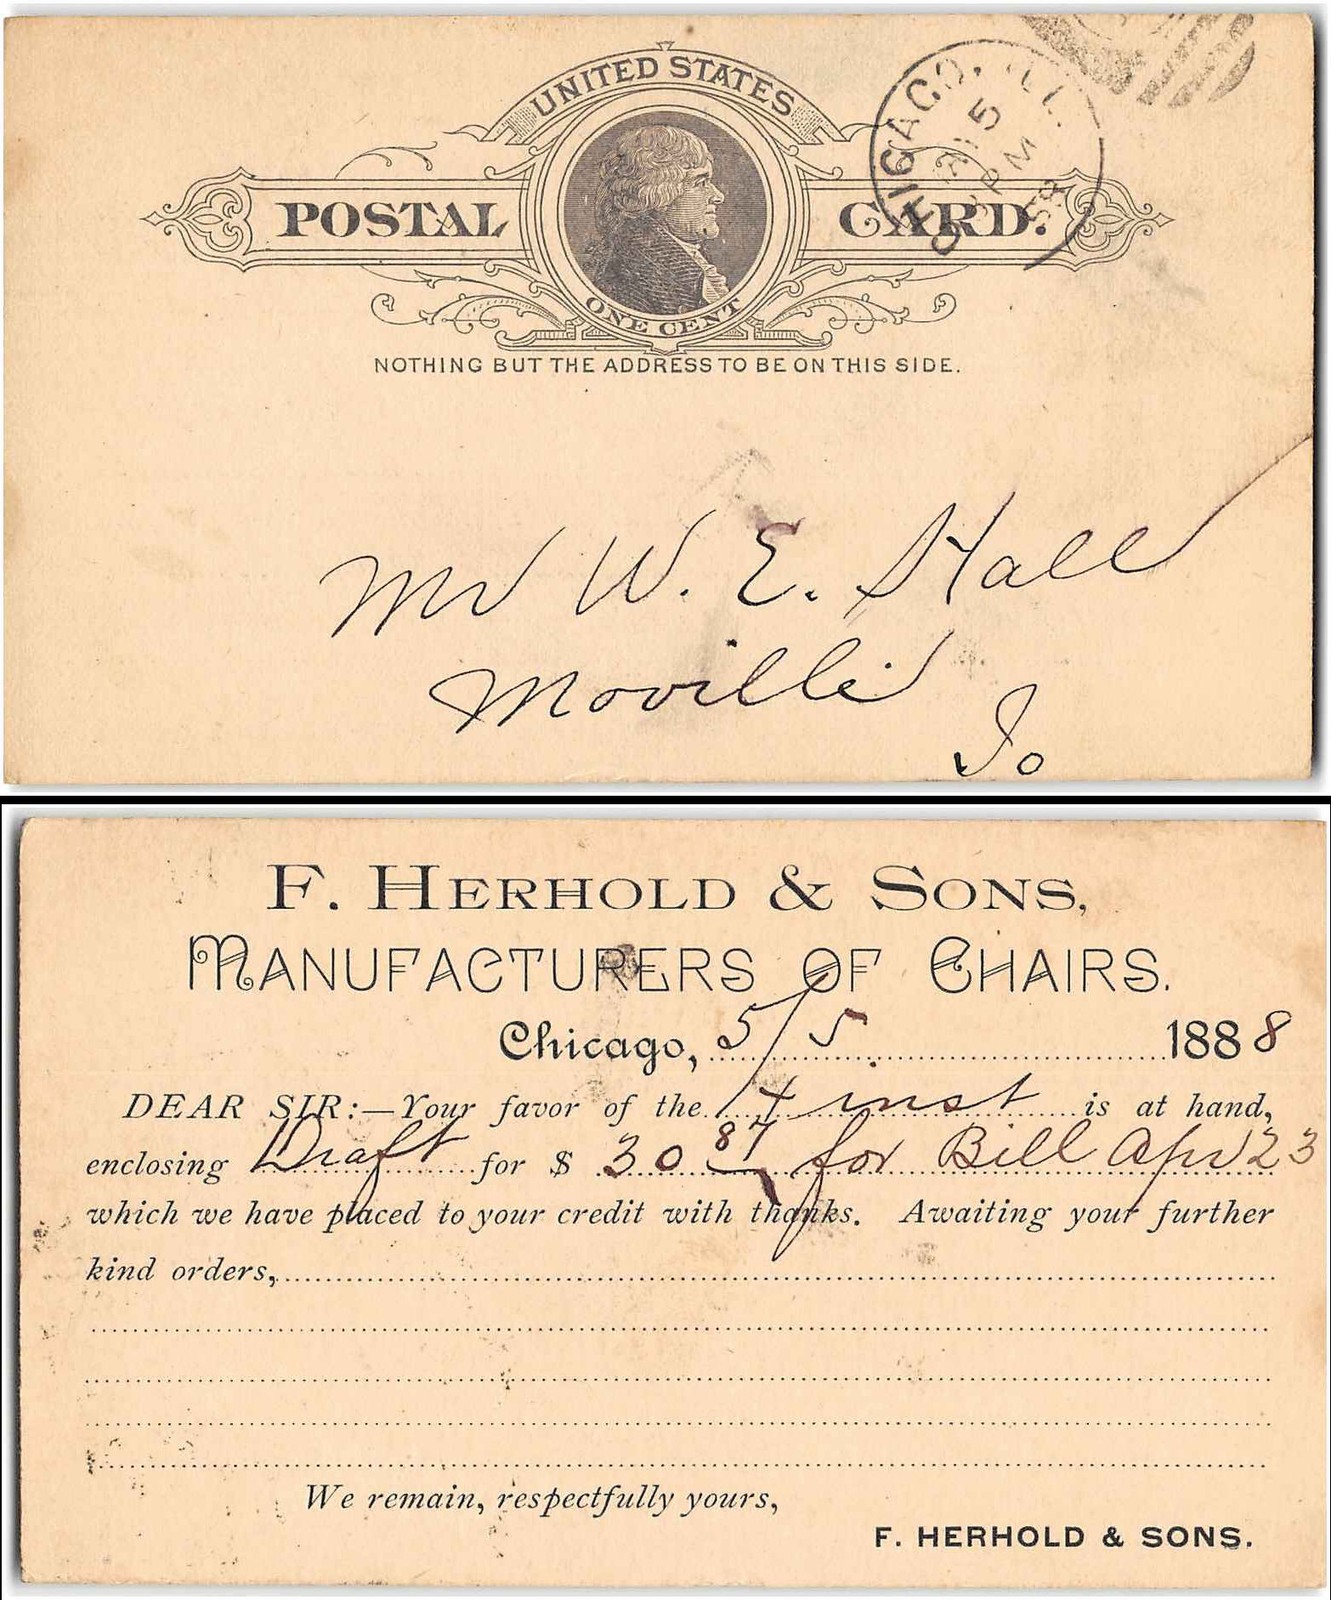 UNITED STATES
POSTAL CARD.
ONE CENT
NOTHING BUT THE ADDRESS TO BE ON THIS SIDE.
CHICAGO, ILL.
5
PM
88
Mr W. E. Hall
Moville
Io
F. HERHOLD & SONS,
MANUFACTURERS OF CHAIRS.
Chicago, 5/5 1888
DEAR SIR:—Your favor of the 4 inst is at hand,
enclosing Draft for $ 30 87 for Bill Apr 23
which we have placed to your credit with thanks. Awaiting your further
kind orders,
We remain, respectfully yours,
F. HERHOLD & SONS.